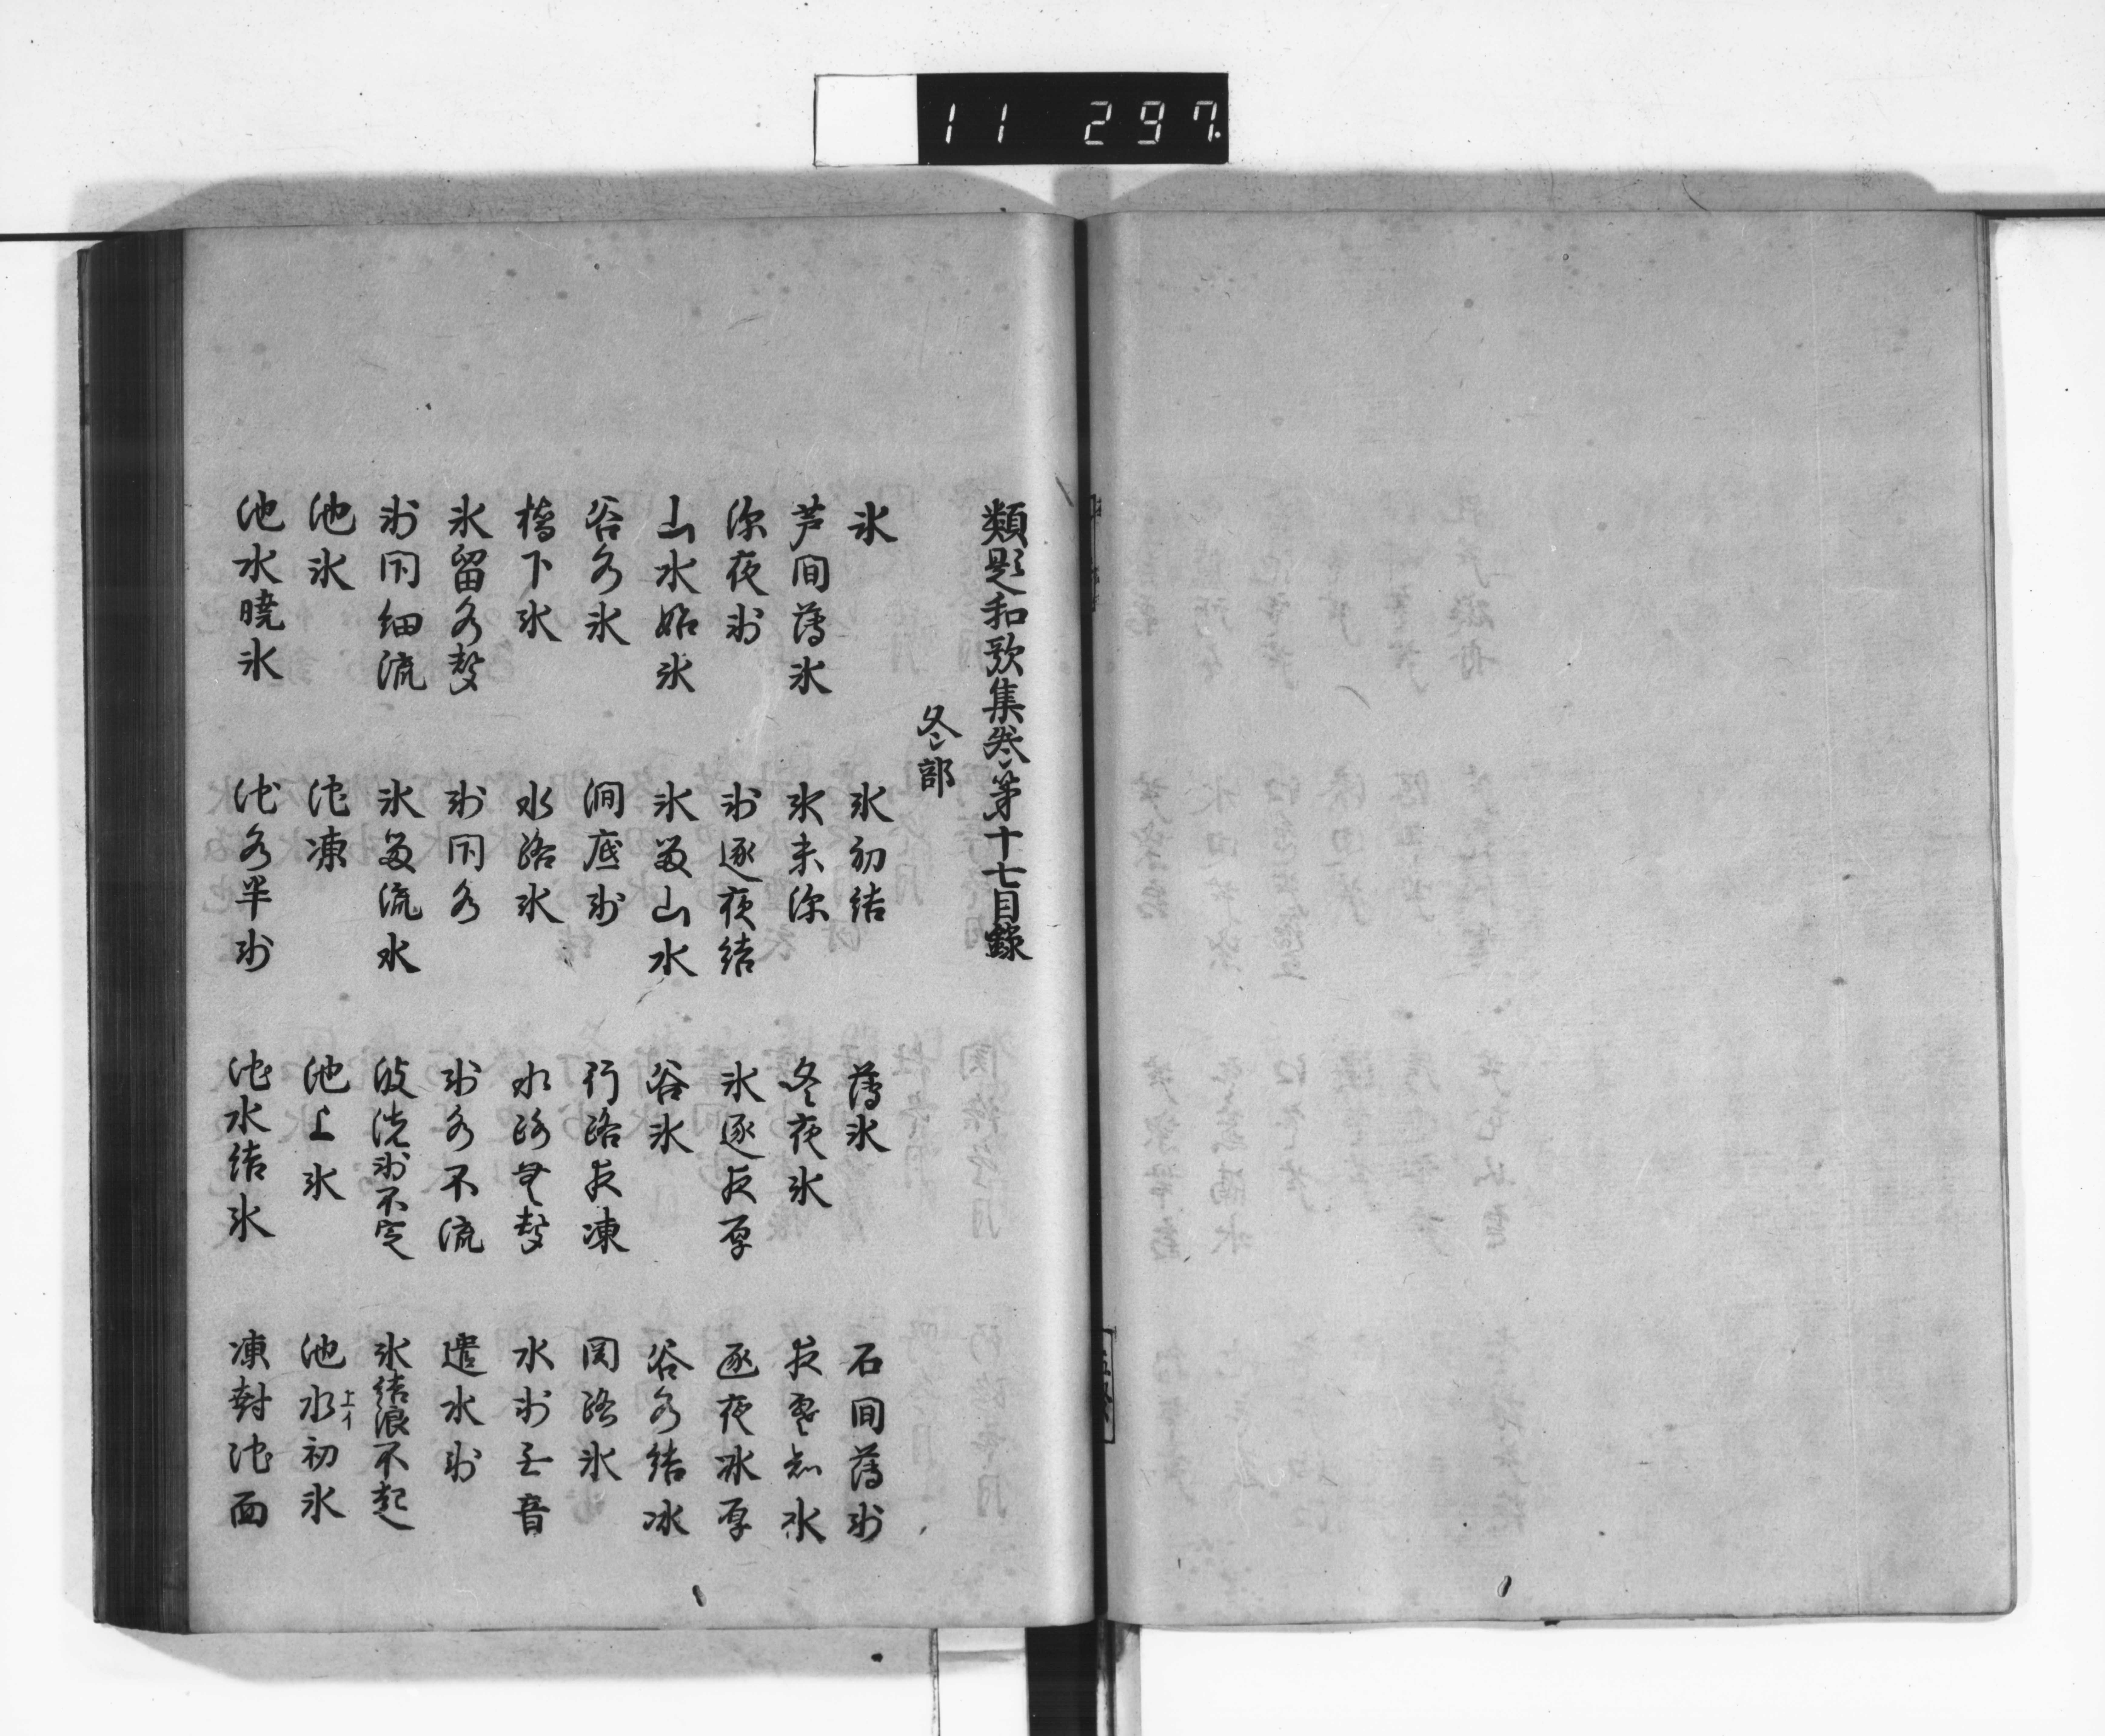 11 297.
類題和歌集巻第十七目録
冬部
氷　氷初結　薄氷　石間薄氷
芦間薄氷　氷未深　冬夜氷　夜　知氷
深夜氷　氷逐夜結　氷逐夜厚　逐夜氷厚
山水始氷　氷留山水　谷氷　谷水結氷
谷水氷　澗底氷　行路夜凍　関路氷
橋下氷　水路氷　水路無聲　水氷无音
氷留水聲　氷閇水　氷水不流　遣水氷
氷閇細流　氷留流水　波洗氷不定　氷結浪不起
池氷　池凍　池上氷　池水上イ初氷
池水暁氷　池水半氷　池水結氷　凍封池面